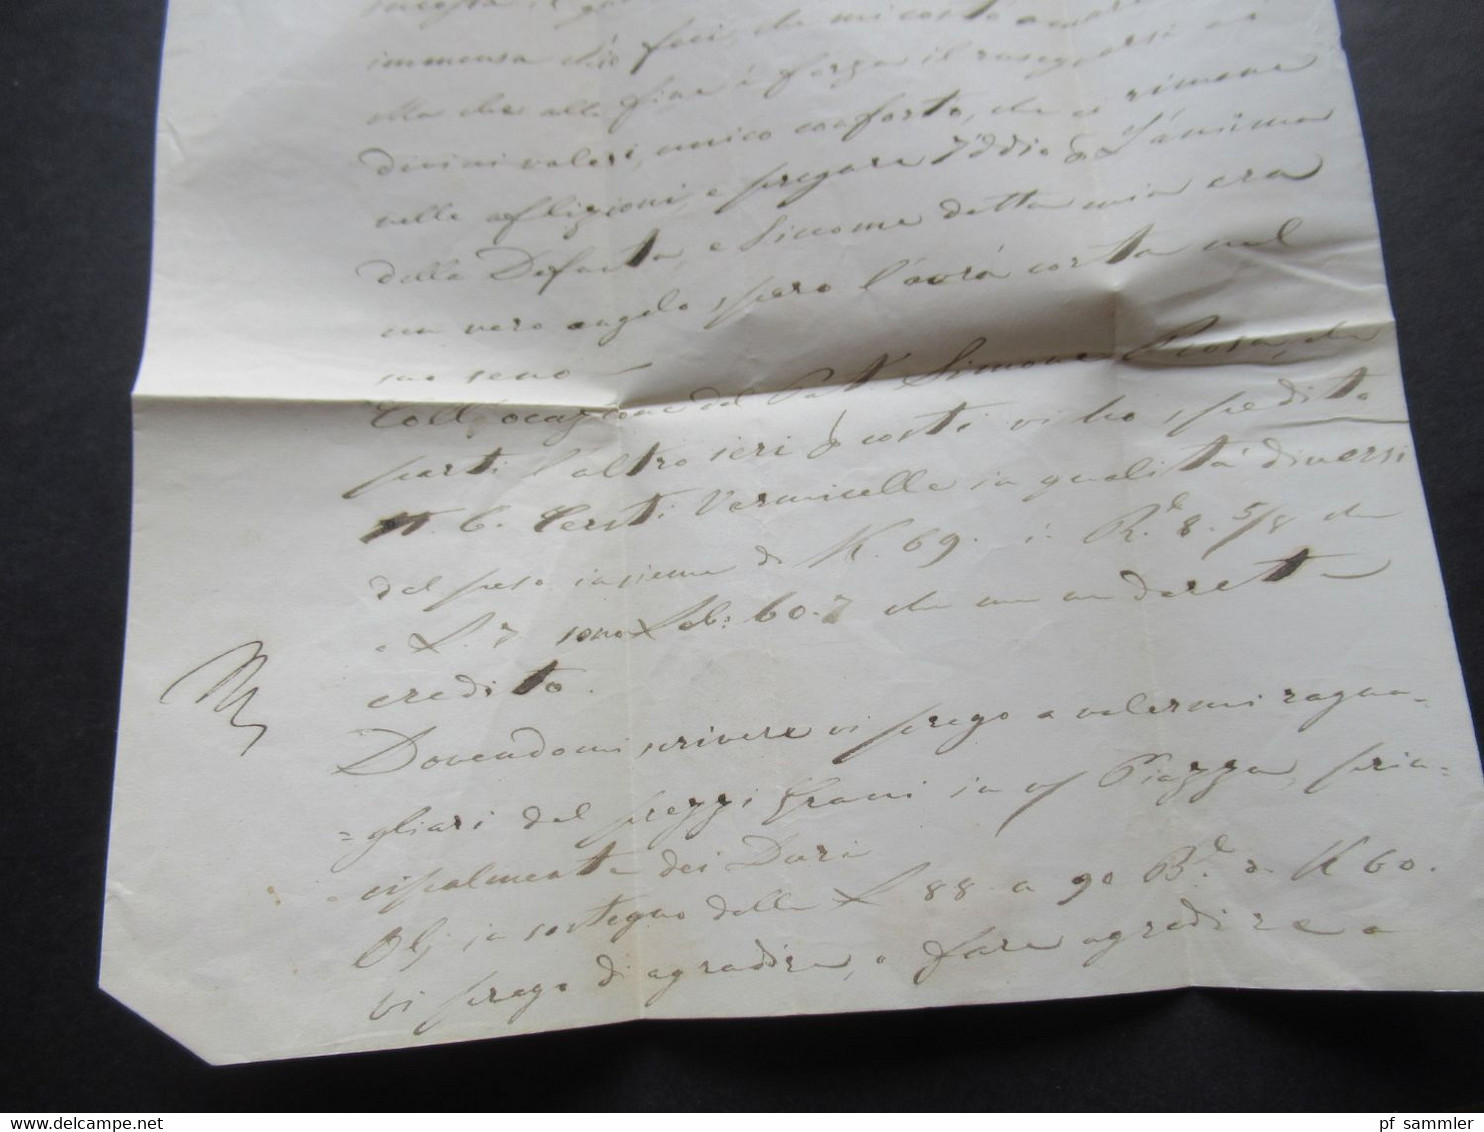 immensa ch'io feci, che mi costò amare
che alla fine è forza il rasegnarsi ai
divini voleri, unico conforto, che ci rimane
nelle afflizioni, e pregare Iddio p l'anima
della Defonta, e siccome detta mia era
un vero angelo spero l'avrà corta nel
suo seno
Coll'ocazione del Pat.n Simone che
partì l'altro ieri p costì vi ho spedito
N. 6. Cesti Vermicelle in qualità diversi
del peso insieme di K. 69. i: R.e 8. 5/8 che
a L. 7 sono Lib: 60.7 che mi andarete
credito.
Dovendomi scrivere vi prego a volermi ragua-
=gliari del prezzi grani in cy Piazza, prin=
cipalmente dei Duri
Olj in sostegno delle L. 88 a 90 B.e di K 60.
Vi prego di agradire, e fare agradire a
pf sammler